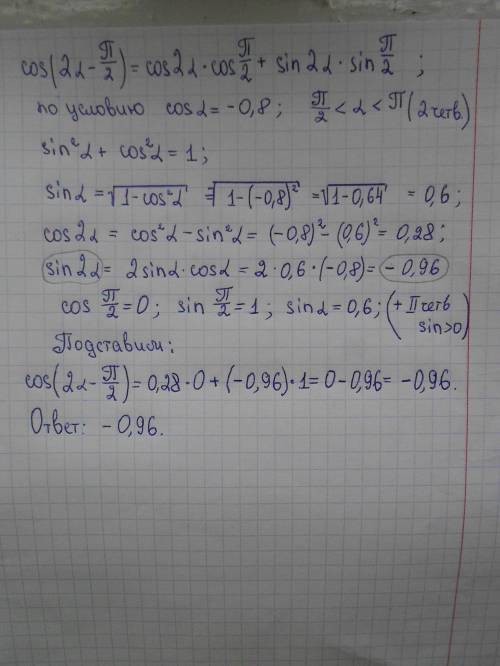 cos(2α - π/2) = cos2α · cos π/2 + sin 2α · sin π/2 ;
по условию cosα = -0,8 ; π/2 < α < π (2 четв.)
sin²α + cos²α = 1 ;
sinα = √(1-cos²α) = √(1-(-0,8)²) = √(1-0,64) = 0,6 ;
cos2α = cos²α - sin²α = (-0,8)² - (0,6)² = 0,28 ;
sin2α = 2sinα · cosα = 2 · 0,6 · (-0,8) = -0,96
cos π/2 = 0 ; sin π/2 = 1 ; sinα = 0,6 ; (+ II четв
sin>0)
Подставим:
cos(2α - π/2) = 0,28 · 0 + (-0,96) · 1 = 0 - 0,96 = -0,96.
Ответ: -0,96.